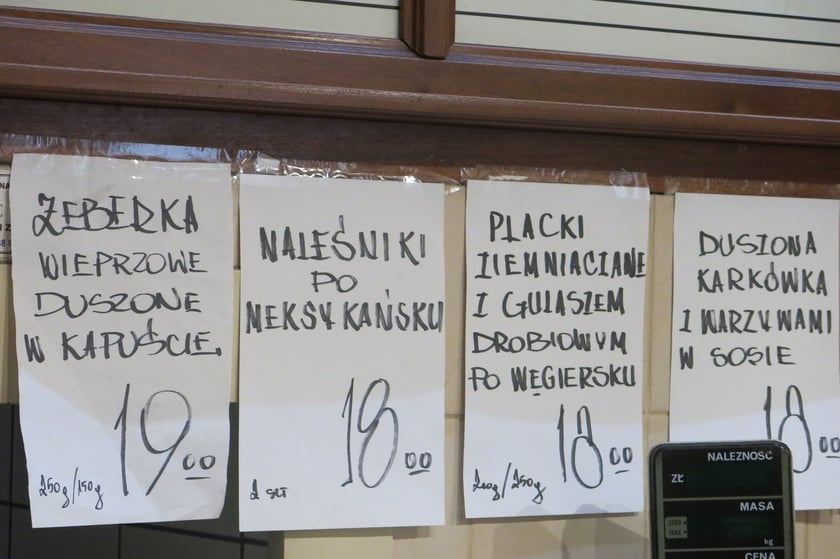 ŻEBERKA
WIEPRZOWE
DUSZONE
W KAPUŚCIE.
19.00
250g/150g
NALEŚNIKI
PO
MEKSYKAŃSKU
18.00
1 SZT
PLACKI
ZIEMNIACZANE
Z GULASZEM
DROBIOWYM
PO WĘGIERSKU
18.00
200g/250g
DUSZONA
KARKÓWKA
Z WARZYWAMI
W SOSIE
18.00
NALEZNOŚĆ
ZŁ
MASA
ZERO
TARA
kg
CENA